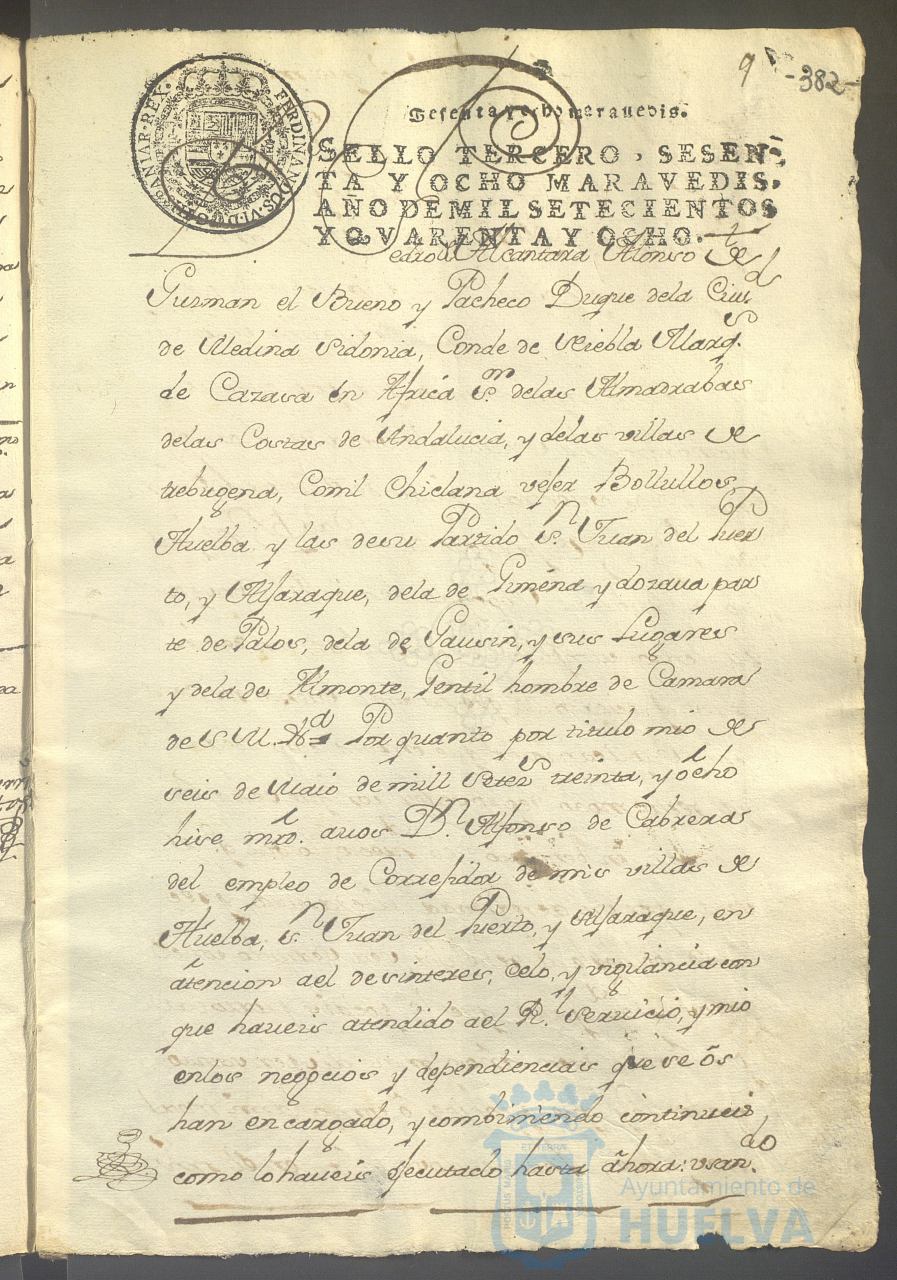 9 -382-
FERDINANDUS·VI·D·G·HISPANIAR·REX·
Sesenta y ocho maravedis.
SELLO TERCERO, SESEN-
TA Y OCHO MARAVEDIS,
AÑO DE MIL SETECIENTOS
Y QVARENTA Y OCHO.
Pedro d Alcantara Alonso de
Guzman el Bueno y Pacheco Duque dela Ciud
de Medina Sidonia, Conde de Niebla Marqs.
de Cazasa en Africa Sr. delas Almadrabas
delas Costas de Andalucia, y delas villas de
trebugena, Conil Chiclana vejer Bollullos
Huelba y las desu Partido Sn. Juan del Puer
to, y Alfaraque, dela de Gimena y dozava par
te de Palos, dela de Gausin, y sus Lugares
y dela de Almonte, Gentil hombre de Camara
de S. M. &a Por quanto por titulo mio de
seis de Maio de mill setezs treinta, y ocho
hise mrd. avos Dn. Alfonso de Cabreras
del empleo de Correxidor de mis villas de
Huelba, Sn. Juan del Puerto, y Alfaraque, en
atencion ael desinteres, Celo, y vigilancia con
que haveis atendido ael Rl. Servicio, y mio
enlos negocios y dependiencias que se os
han encargado, y combiniendo continueis,
como lo haveis ejecutado hasta ahora: usando
PORTUS MARIS ET TERRAE CUSTODIA
Ayuntamiento de
HUELVA